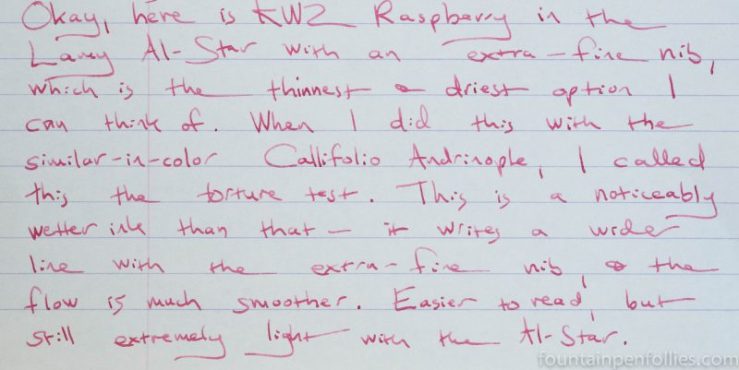 Okay, here is KWZ Raspberry in the
Lamy Al-Star with an extra-fine nib,
which is the thinnest & driest option I
can think of. When I did this with the
similar-in-color Callifolio Andrinople, I called
this the torture test. This is a noticeably
wetter ink than that - it writes a wider
line with the extra-fine nib, & the
flow is much smoother. Easier to read, but
still extremely light with the Al-Star.
fountainpenfollies.com